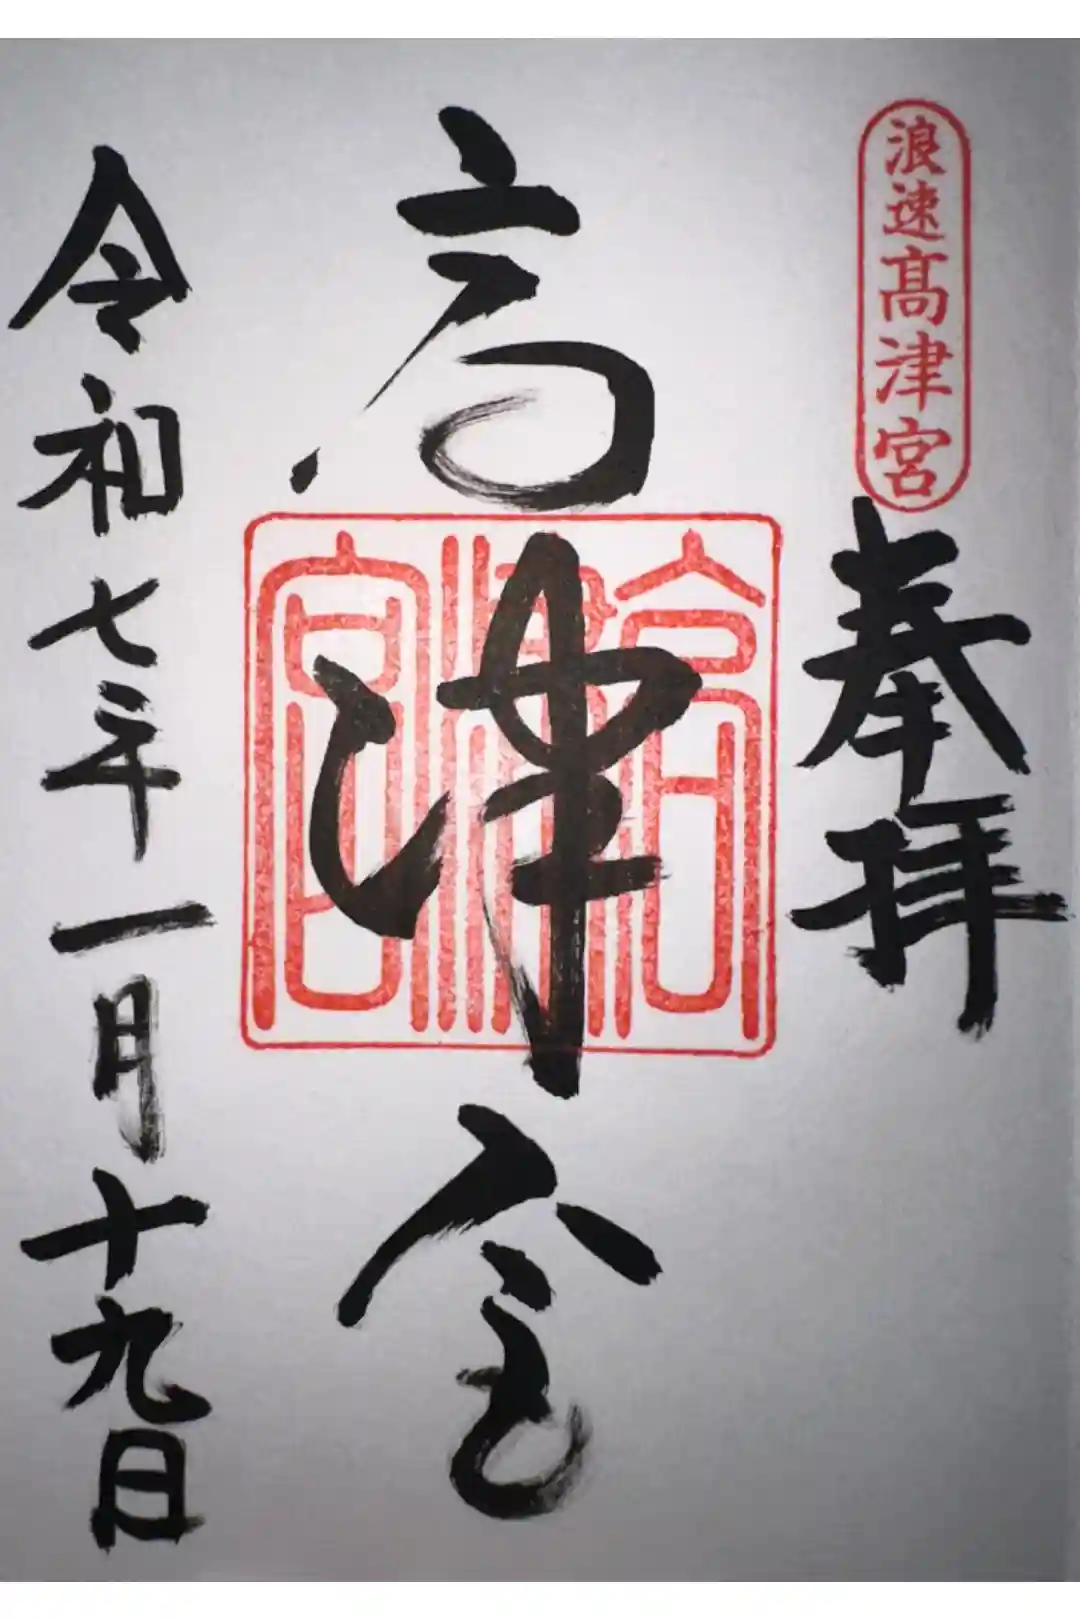 浪速髙津宮
奉拝
高津宮
高津宮
令和七年一月十九日